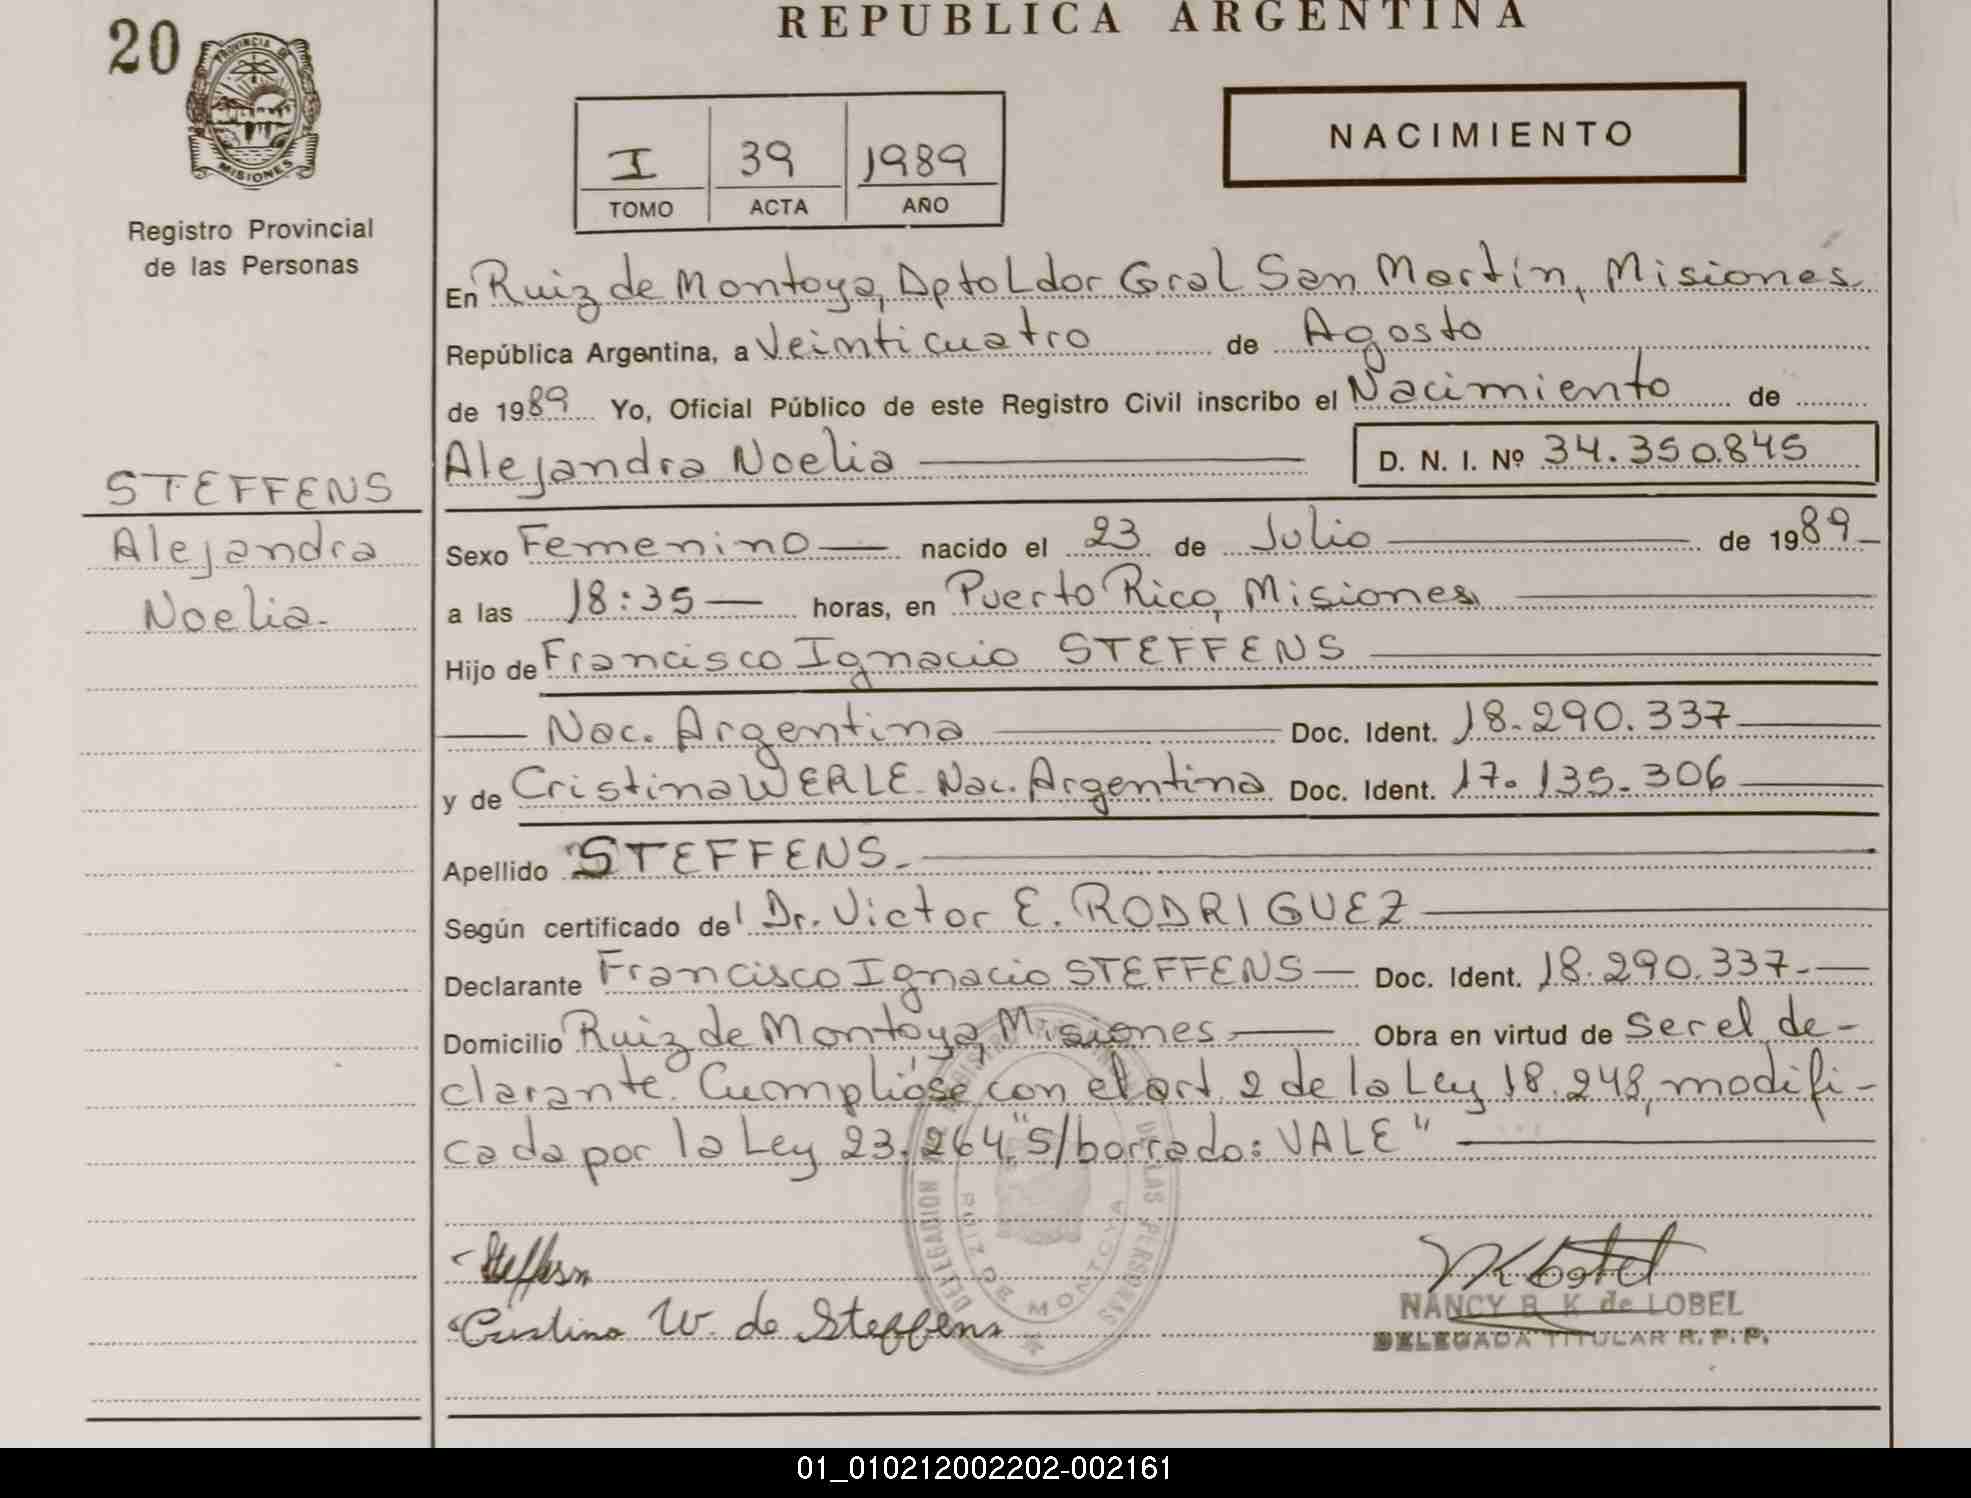 20
REPUBLICA ARGENTINA
PROVINCIA DE MISIONES
Registro Provincial
de las Personas
I 39 1989
TOMO ACTA AÑO
NACIMIENTO
En Ruiz de Montoya, Dpto Ldor Gral San Martín, Misiones
República Argentina, a Veinticuatro de Agosto
de 1989 Yo, Oficial Público de este Registro Civil inscribo el Nacimiento de
Alejandra Noelia D. N. I. Nº 34.350.845
STEFFENS
Alejandra
Noelia.
Sexo Femenino nacido el 23 de Julio de 1989
a las 18:35 horas, en Puerto Rico, Misiones
Hijo de Francisco Ignacio STEFFENS
Nac. Argentina Doc. Ident. 18.290.337
y de Cristina WERLE. Nac. Argentina Doc. Ident. 17.135.306
Apellido STEFFENS.
Según certificado de Dr. Victor E. RODRIGUEZ
Declarante Francisco Ignacio STEFFENS Doc. Ident. 18.290.337.
Domicilio Ruiz de Montoya, Misiones Obra en virtud de ser el de-
clarante. Cumplióse con el art. 2 de la Ley 18.248, modifi-
cada por la Ley 23.264. "S/borrado: VALE"
DELEGACION DE LAS PERSONAS
RUIZ DE MONTOYA
Steffens
Cristina W. de Steffens
NANCY B. K de LOBEL
DELEGADA TITULAR R. P. P.
01_010212002202-002161